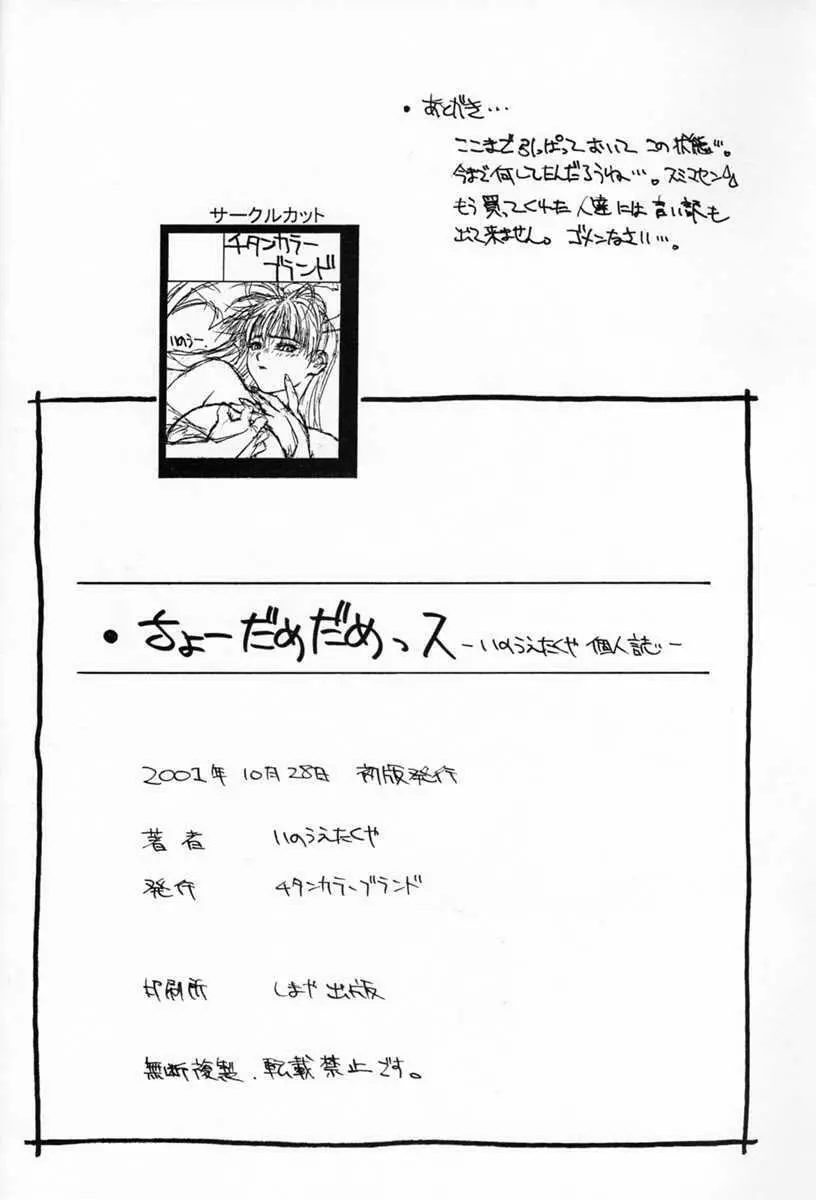 ・あとがき…
ここまで引っぱっておいて この状態…。
今まで何してたんだろうね…。スミマセン
もう買ってくれた人達には言い訳も
出て来ません。ゴメンなさい…。
サークルカット
チタンカラー
ブランド
いのうー.
・ちょーだめだめっス －いのうえたくや 個人誌－
2001年 10月28日 初版発行
著者 いのうえたくや
発行 チタンカラーブランド
印刷所 しまや出版
無断複製、転載禁止です。